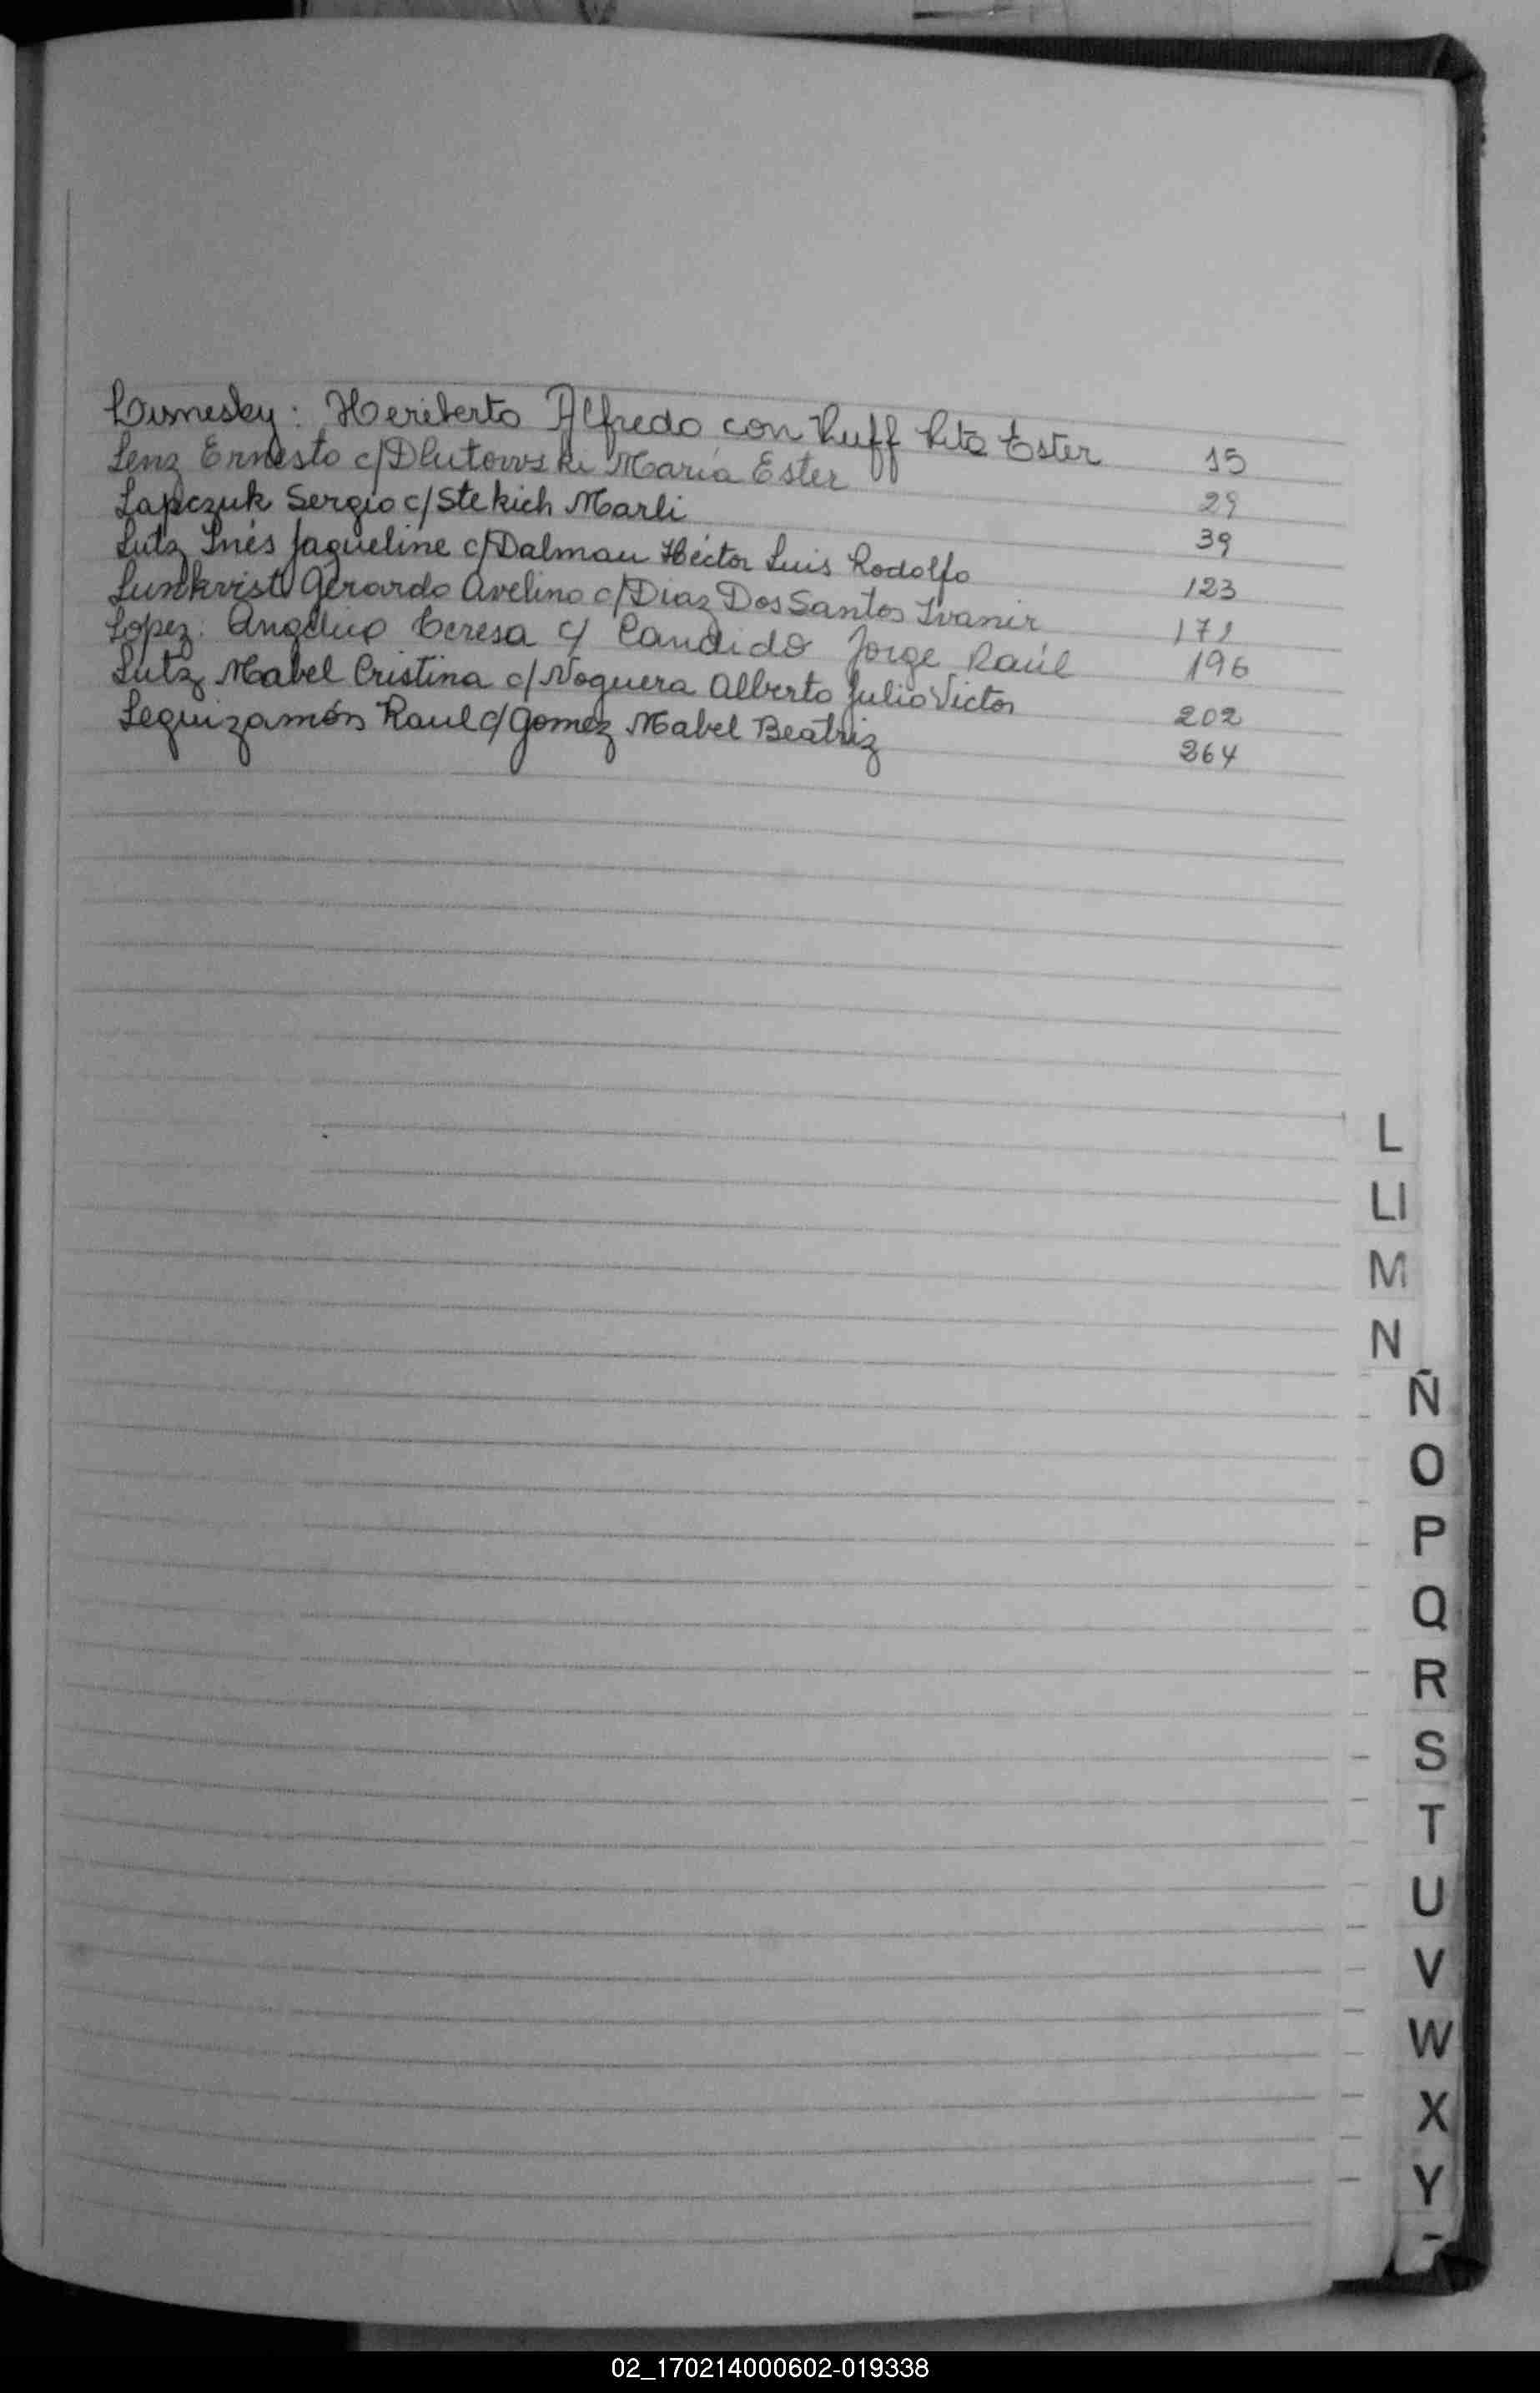 Lisnesky: Heriberto Alfredo con Ruff Rita Ester 15
Lenz Ernesto c/Dlutowski María Ester 29
Lapczuk Sergio c/Stekich Marli 39
Lutz Inés Jaqueline c/Dalmau Héctor Luis Rodolfo 123
Lunkvist Gerardo Avelino c/Diaz Dos Santos Ivanir 171
Lopez: Angélica Teresa c/ Candido Jorge Raúl 196
Lutz Mabel Cristina c/Noguera Alberto Julio Victor 202
Leguizamón Raul c/Gomez Mabel Beatriz 264
L
Ll
M
N
Ñ
O
P
Q
R
S
T
U
V
W
X
Y
02_170214000602-019338